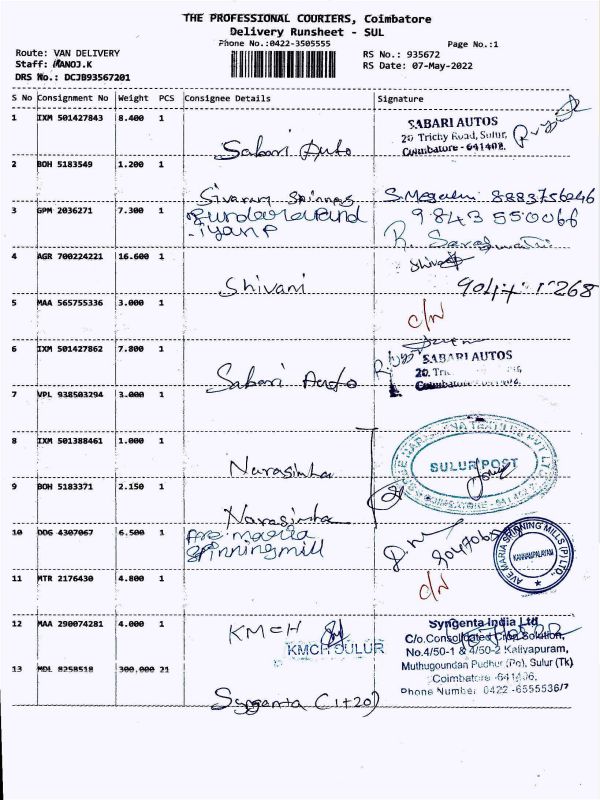 THE PROFESSIONAL COURIERS, Coimbatore
Delivery Runsheet - SUL
Phone No.:0422-3505555
Page No.:1
Route: VAN DELIVERY
RS No.: 935672
Staff: MANOJ.K
RS Date: 07-May-2022
DRS No.: DCJB93567201
S No Consignment No Weight PCS Consignee Details Signature
1 IXM 501427843 8.400 1
Sabari Auto
SABARI AUTOS
20 Trichy Road, Sulur,
Coimbatore - 641402.
2 BOH 5183549 1.200 1
Sivaram Spinners
8883756246
3 GPM 2036271 7.300 1
9843550066
4 AGR 700224221 16.600 1
Shivani
5 MAA 565755336 3.000 1
C/N
6 IXM 501427862 7.800 1
Sabari Auto
SABARI AUTOS
20.
7 VPL 938503294 3.000 1
8 IXM 501388461 1.000 1
Narasimha
SULUR POST
9 BOH 5183371 2.150 1
Narasimha
10 DDG 4307067 6.500 1
Ave maria
Spinning mill
AVE MARIA SPINNING MILLS (P) LTD.,
KANNAMPALAYAM
11 MTR 2176430 4.800 1
C/N
12 MAA 290074281 4.000 1
KMCH
KMCH SULUR
Syngenta India Ltd
C/o.Consolidated Crop Solution,
No.4/50-1 & 4/50-2 Kalivapuram,
Muthugoundan Pudhur (Po), Sulur (Tk)
Coimbatore -641406.
Phone Number 0422 -6555536/7
13 MDL 8258518 300.000 21
Syngenta (1+20)